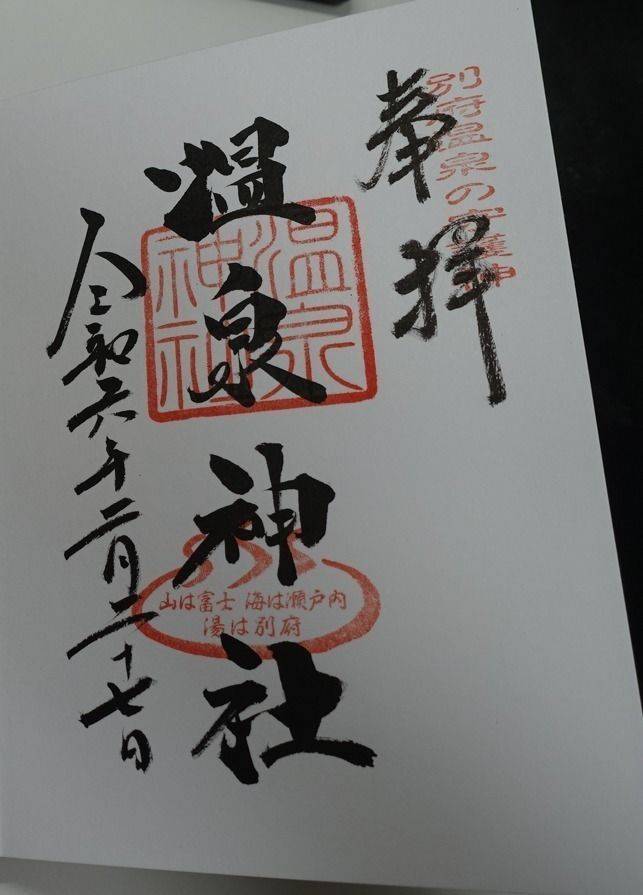 別府温泉の守護神
奉拝
温泉神社
温泉
神社
山は富士 海は瀬戸内
湯は別府
令和六年二月二十七日